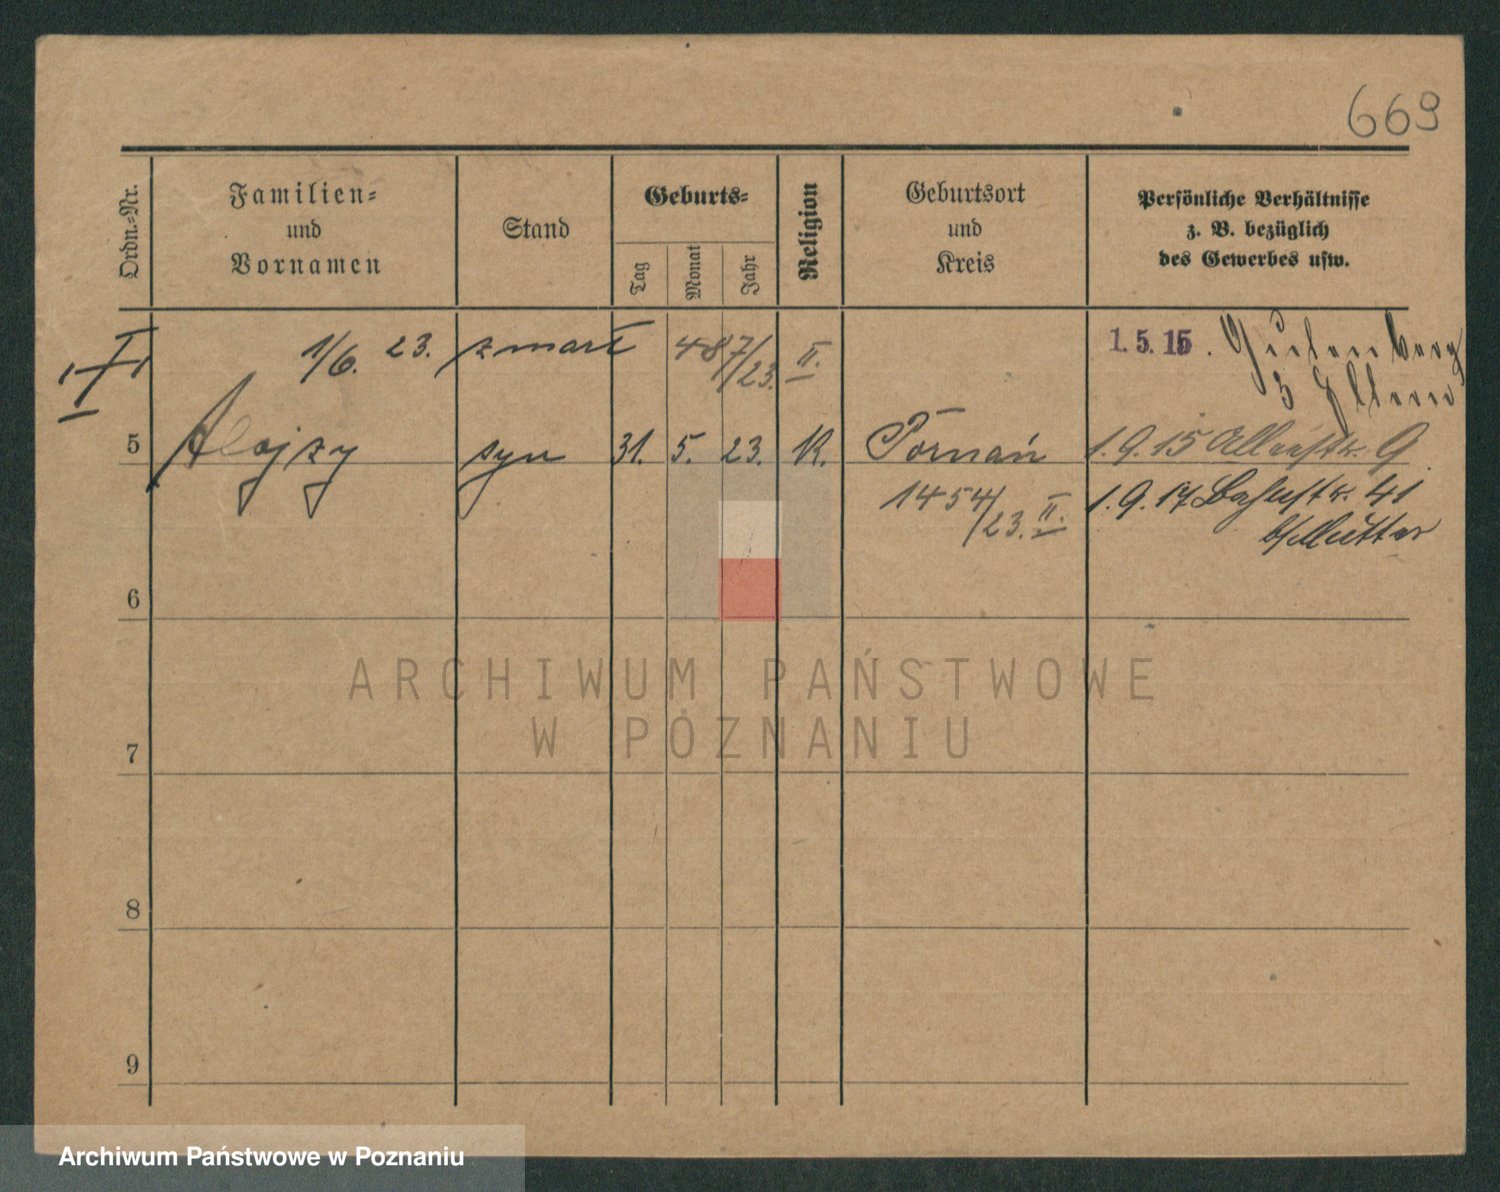 669
Ordn.-Nr.
Familien-
und
Vornamen
Stand
Geburts-
Tag
Monat
Jahr
Religion
Geburtsort
und
Kreis
Persönliche Verhältnisse
z. B. bezüglich
des Gewerbes usw.
1/6. 23. zmarł 487/23. II.
1.5.15.
3
5 Alojzy syn 31. 5. 23. K. Poznań 1.9.15 9
1454/23. II. 1.9.17 41
b/Mutter
6
7
8
9
ARCHIWUM PAŃSTWOWE
W POZNANIU
Archiwum Państwowe w Poznaniu